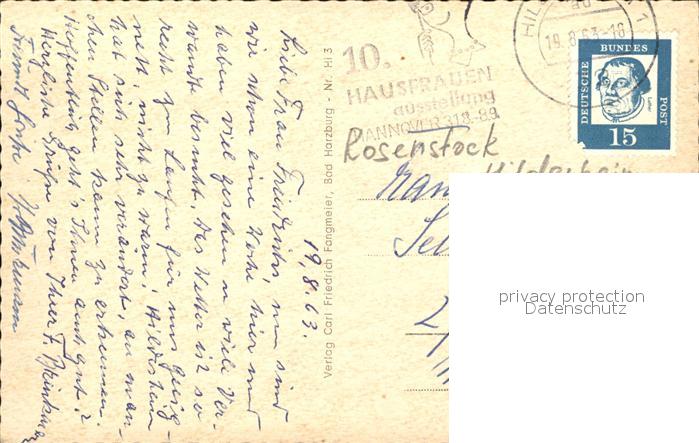 19.8.63.
Liebe Frau Friedrichs, nun sind
wir schon eine Woche hier und
haben viel gesehen u viele Ver-
wandte besucht. Das Wetter ist so
recht zu Laufen für uns geeig-
net, nicht zu warm! Hildesheim
hat sich sehr verändert, an man-
chen Stellen kaum zu erkennen.
Hoffentlich geht's Ihnen auch gut?
Herzliche Grüße von Ihrer F. Brinkma
Verlag Carl Friedrich Fangmeier, Bad Harzburg - Nr. Hi 3
10.
HAUSFRAUEN
ausstellung
HANNOVER 31.8.-8.9.
HIL
19.8.63-16
1
DEUTSCHE
BUNDES
POST
15
Rosenstock
Hildesheim
privacy protection
Datenschutz